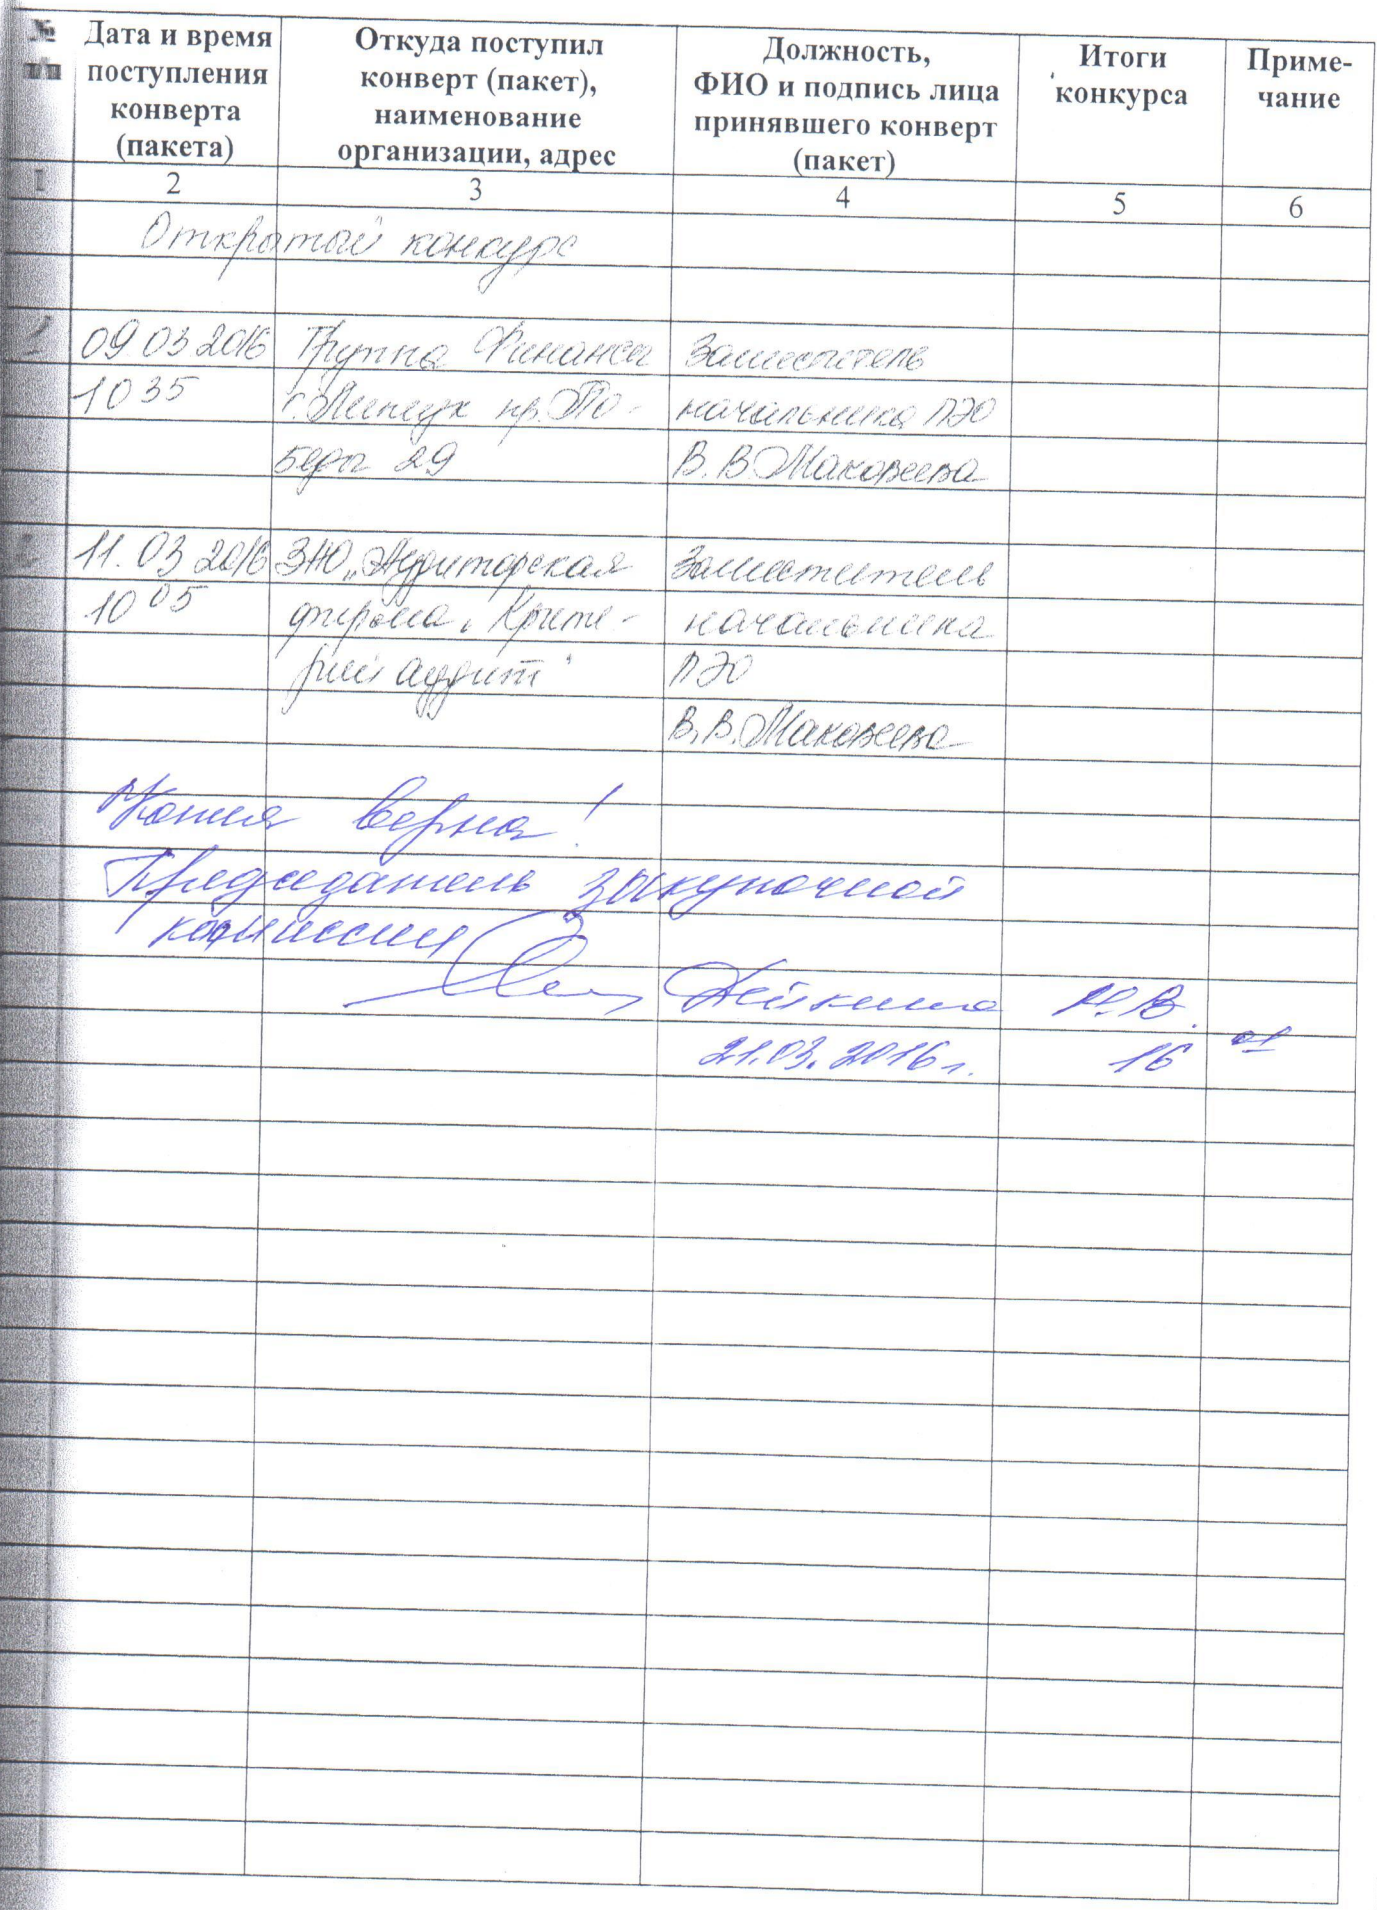 № п/п
Дата и время поступления конверта (пакета)
Откуда поступил конверт (пакет), наименование организации, адрес
Должность, ФИО и подпись лица принявшего конверт (пакет)
Итоги конкурса
Приме-чание
1 2 3 4 5 6
Открытый конкурс
1 09 03 2016 Группа Финансы Заместитель
10 35 г. Липецк пр. По- начальника ПЭО
беды 29 В. В. Маковеева
2 11. 03 2016 ЗАО „Аудиторская Заместитель
10 05 фирма „Крите- начальника
рий аудит" ПЭО
В. В. Маковеева
Копия верна!
Председатель закупочной
комиссии
Н. В.
21.03.2016 г. 16 01